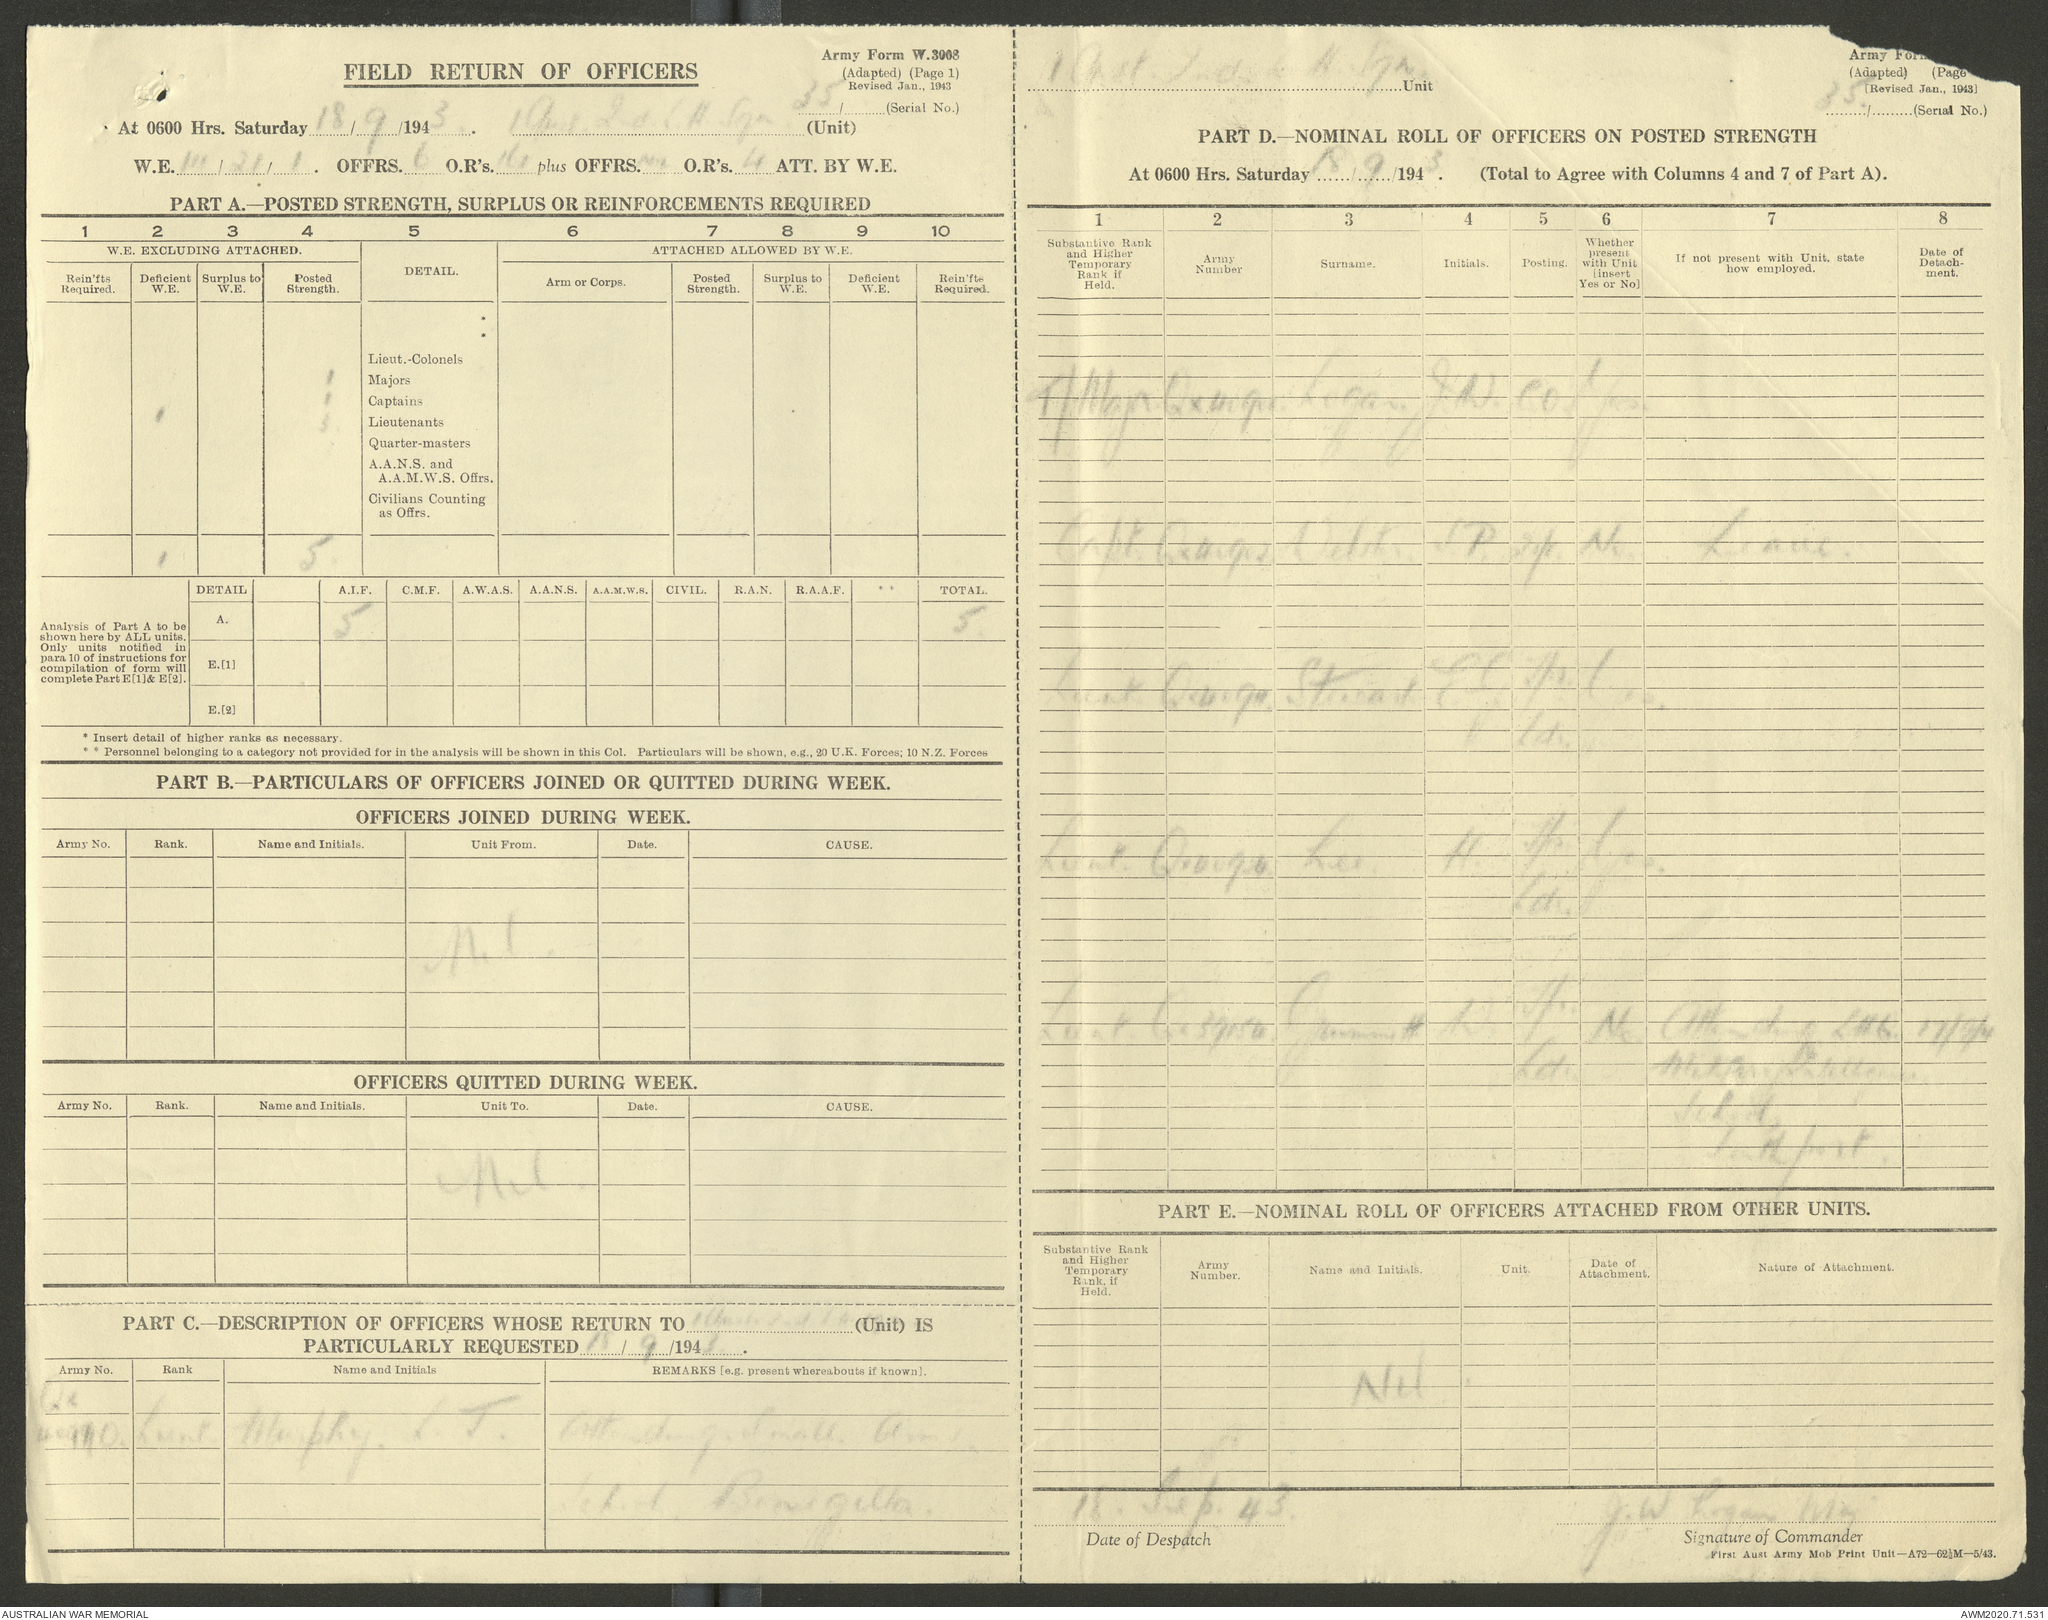 Army Form W.3008
FIELD RETURN OF OFFICERS
(Adapted) (Page 1)
Revised Jan., 1943
35/ (Serial No.)
At 0600 Hrs. Saturday 18/9/1943. 1 Aust Ind L H Sqn (Unit)
W.E. III/21/1. OFFRS. 6 O.R's. plus OFFRS. O.R's. 4 ATT. BY W.E.
PART A.—POSTED STRENGTH, SURPLUS OR REINFORCEMENTS REQUIRED
1 2 3 4 5 6 7 8 9 10
W.E. EXCLUDING ATTACHED. DETAIL. ATTACHED ALLOWED BY W.E.
Rein'fts Required. Deficient W.E. Surplus to W.E. Posted Strength. Arm or Corps. Posted Strength. Surplus to W.E. Deficient W.E. Rein'fts Required.
*
*
Lieut.-Colonels
1 Majors
1 Captains
1 3 Lieutenants
Quarter-masters
A.A.N.S. and
A.A.M.W.S. Offrs.
Civilians Counting
as Offrs.
1 5
DETAIL A.I.F. C.M.F. A.W.A.S. A.A.N.S. A.A.M.W.S. CIVIL. R.A.N. R.A.A.F. ** TOTAL.
Analysis of Part A to be
shown here by ALL units.
Only units notified in
para 10 of instructions for
compilation of form will
complete Part E[1]& E[2].
A. 5 5
E.[1]
E.[2]
* Insert detail of higher ranks as necessary.
* * Personnel belonging to a category not provided for in the analysis will be shown in this Col. Particulars will be shown, e.g., 20 U.K. Forces; 10 N.Z. Forces
PART B.—PARTICULARS OF OFFICERS JOINED OR QUITTED DURING WEEK.
OFFICERS JOINED DURING WEEK.
Army No. Rank. Name and Initials. Unit From. Date. CAUSE.
Nil.
OFFICERS QUITTED DURING WEEK.
Army No. Rank. Name and Initials. Unit To. Date. CAUSE.
Nil.
PART C.—DESCRIPTION OF OFFICERS WHOSE RETURN TO (Unit) IS
PARTICULARLY REQUESTED 18/9/1943.
Army No. Rank Name and Initials REMARKS [e.g. present whereabouts if known].
Qx
Lieut. Murphy. L. T. Attending Small Arms
School Bonegilla.
1 Aust Ind L H Sqn Unit
Army For
(Adapted) (Page
[Revised Jan., 1943]
35/ (Serial No.)
PART D.—NOMINAL ROLL OF OFFICERS ON POSTED STRENGTH
At 0600 Hrs. Saturday 18/9/1943. (Total to Agree with Columns 4 and 7 of Part A).
1 2 3 4 5 6 7 8
Substantive Rank and Higher Temporary Rank if Held. Army Number Surname. Initials. Posting. Whether present with Unit [insert Yes or No] If not present with Unit, state how employed. Date of Detach-ment.
T/Major Logan J.W. C.O. Yes.
Capt. No. Leave.
Lieut. Stewart Yes.
Ldr.
Lieut. Lee. H. Yes.
Ldr.
Lieut. No. Attending LHQ
Ldr. Military Intelligence
School,
Southport.
PART E.—NOMINAL ROLL OF OFFICERS ATTACHED FROM OTHER UNITS.
Substantive Rank and Higher Temporary Rank, if Held. Army Number. Name and Initials. Unit. Date of Attachment. Nature of Attachment.
Nil.
18. Sep. 43. J.W Logan Maj
Date of Despatch Signature of Commander
First Aust Army Mob Print Unit—A72—62½M—5/43.
AUSTRALIAN WAR MEMORIAL AWM2020.71.531